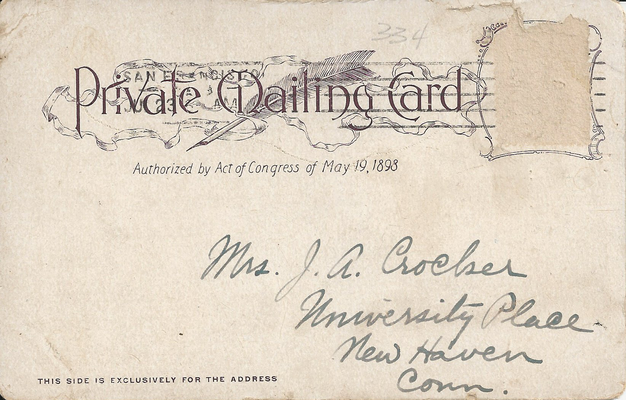 334
SAN FRANCISCO
AM
Private Mailing Card
Authorized by Act of Congress of May 19, 1898
Mrs. J. A. Crocker
University Place
New Haven
Conn.
THIS SIDE IS EXCLUSIVELY FOR THE ADDRESS